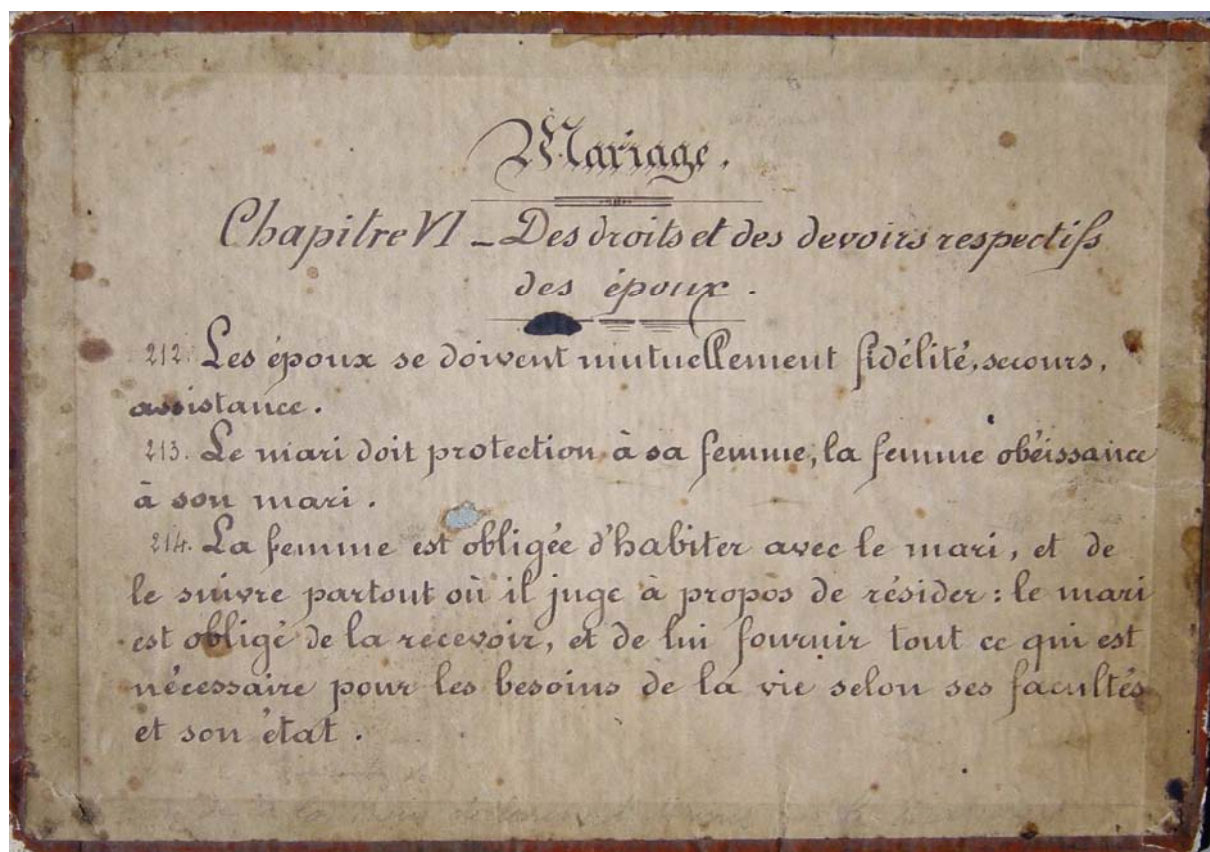 Mariage.
Chapitre VI _ Des droits et des devoirs respectifs
des époux.
212. Les époux se doivent mutuellement fidélité, secours,
assistance.
213. Le mari doit protection à sa femme, la femme obéissance
à son mari.
214. La femme est obligée d'habiter avec le mari, et de
le suivre partout où il juge à propos de résider : le mari
est obligé de la recevoir, et de lui fournir tout ce qui est
nécessaire pour les besoins de la vie selon ses facultés
et son état.